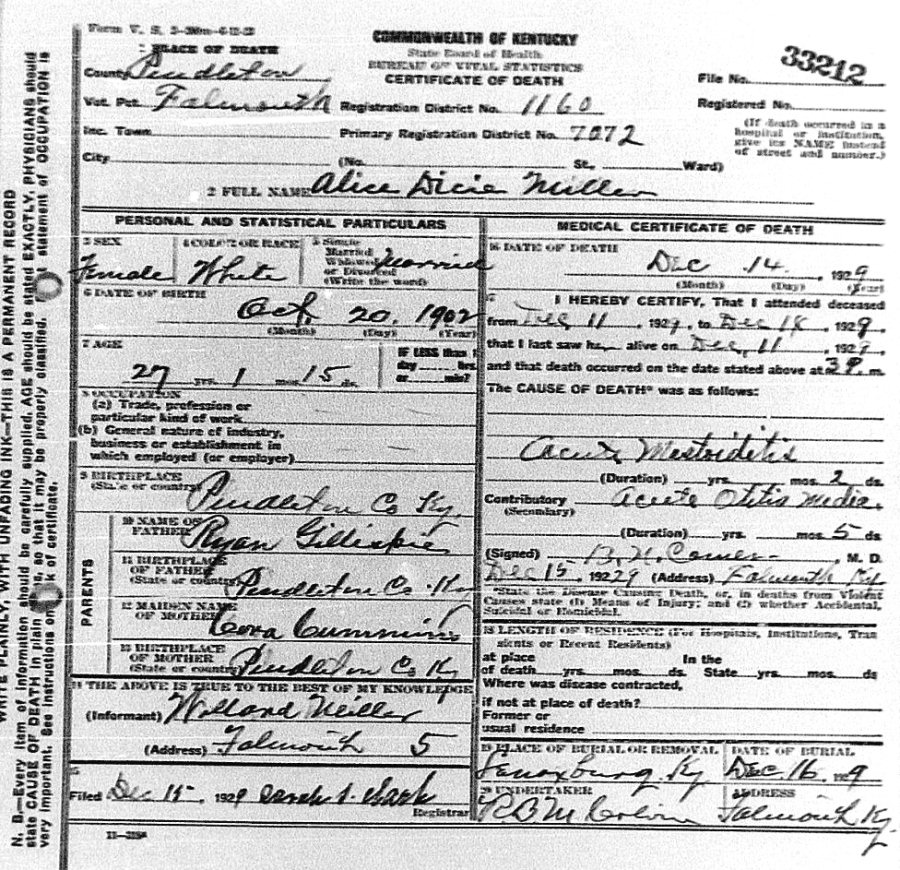 Form V. S. 2-200m-6-12-23
COMMONWEALTH OF KENTUCKY
State Board of Health
BUREAU OF VITAL STATISTICS
CERTIFICATE OF DEATH
1 PLACE OF DEATH
County Pendleton
Vot. Pct. Falmouth
Inc. Town
City
Registration District No. 1160
Primary Registration District No. 7072
(No. St., Ward)
File No. 33212
Registered No.
(If death occurred in a
hospital or institution,
give its NAME instead
of street and number.)
2 FULL NAME Alice Dicie Miller
PERSONAL AND STATISTICAL PARTICULARS
3 SEX
Female
4 COLOR OR RACE
White
5 Single
Married
Widowed
or Divorced
(Write the word)
Married
6 DATE OF BIRTH
Oct. 20, 1902
(Month) (Day) (Year)
7 AGE
27 yrs. 1 mos. 15 ds.
IF LESS than 1
day hrs.
or min?
8 OCCUPATION
(a) Trade, profession or
particular kind of work
(b) General nature of industry,
business or establishment in
which employed (or employer)
9 BIRTHPLACE
(State or country)
Pendleton Co Ky.
PARENTS
10 NAME OF
FATHER
Ryan Gillispie
11 BIRTHPLACE
OF FATHER
(State or country)
Pendleton Co. Ky
12 MAIDEN NAME
OF MOTHER
Cora Cummins
13 BIRTHPLACE
OF MOTHER
(State or country)
Pendleton Co Ky
14 THE ABOVE IS TRUE TO THE BEST OF MY KNOWLEDGE
(Informant) Willard Miller
(Address) Falmouth 5
15
Filed Dec 15, 1929
Registrar
11-3184
MEDICAL CERTIFICATE OF DEATH
16 DATE OF DEATH
Dec 14, 1929
(Month) (Day) (Year)
17 I HEREBY CERTIFY, That I attended deceased
from Dec 11, 1929, to Dec 14, 1929,
that I last saw her alive on Dec, 11, 1929,
and that death occurred on the date stated above at 3 P. m
The CAUSE OF DEATH* was as follows:
Acute Mastoiditis
(Duration) yrs. mos. 2 ds.
Contributory Acute Otitis Media
(Secondary)
(Duration) yrs. mos. 5 ds.
(Signed) B. N. M. D.
Dec 15, 1929 (Address) Falmouth Ky
*State the Disease Causing Death, or, in deaths from Violent
Causes state (1) Means of Injury; and (2) whether Accidental,
Suicidal or Homicidal.
18 LENGTH OF RESIDENCE (For Hospitals, Institutions, Tran
sients or Recent Residents)
at place In the
of death yrs. mos. ds. State yrs. mos. ds
Where was disease contracted,
if not at place of death?
Former or
usual residence
19 PLACE OF BURIAL OR REMOVAL
Lenoxburg, Ky
DATE OF BURIAL
Dec 16, 1929
20 UNDERTAKER
R B McColvin
ADDRESS
Falmouth Ky.
WRITE PLAINLY, WITH UNFADING INK—THIS IS A PERMANENT RECORD
N. B.—Every item of information should be carefully supplied. AGE should be stated EXACTLY, PHYSICIANS should
state CAUSE OF DEATH in plain so that it may be properly classified. statement of OCCUPATION is
very important. See instructions on of certificate.